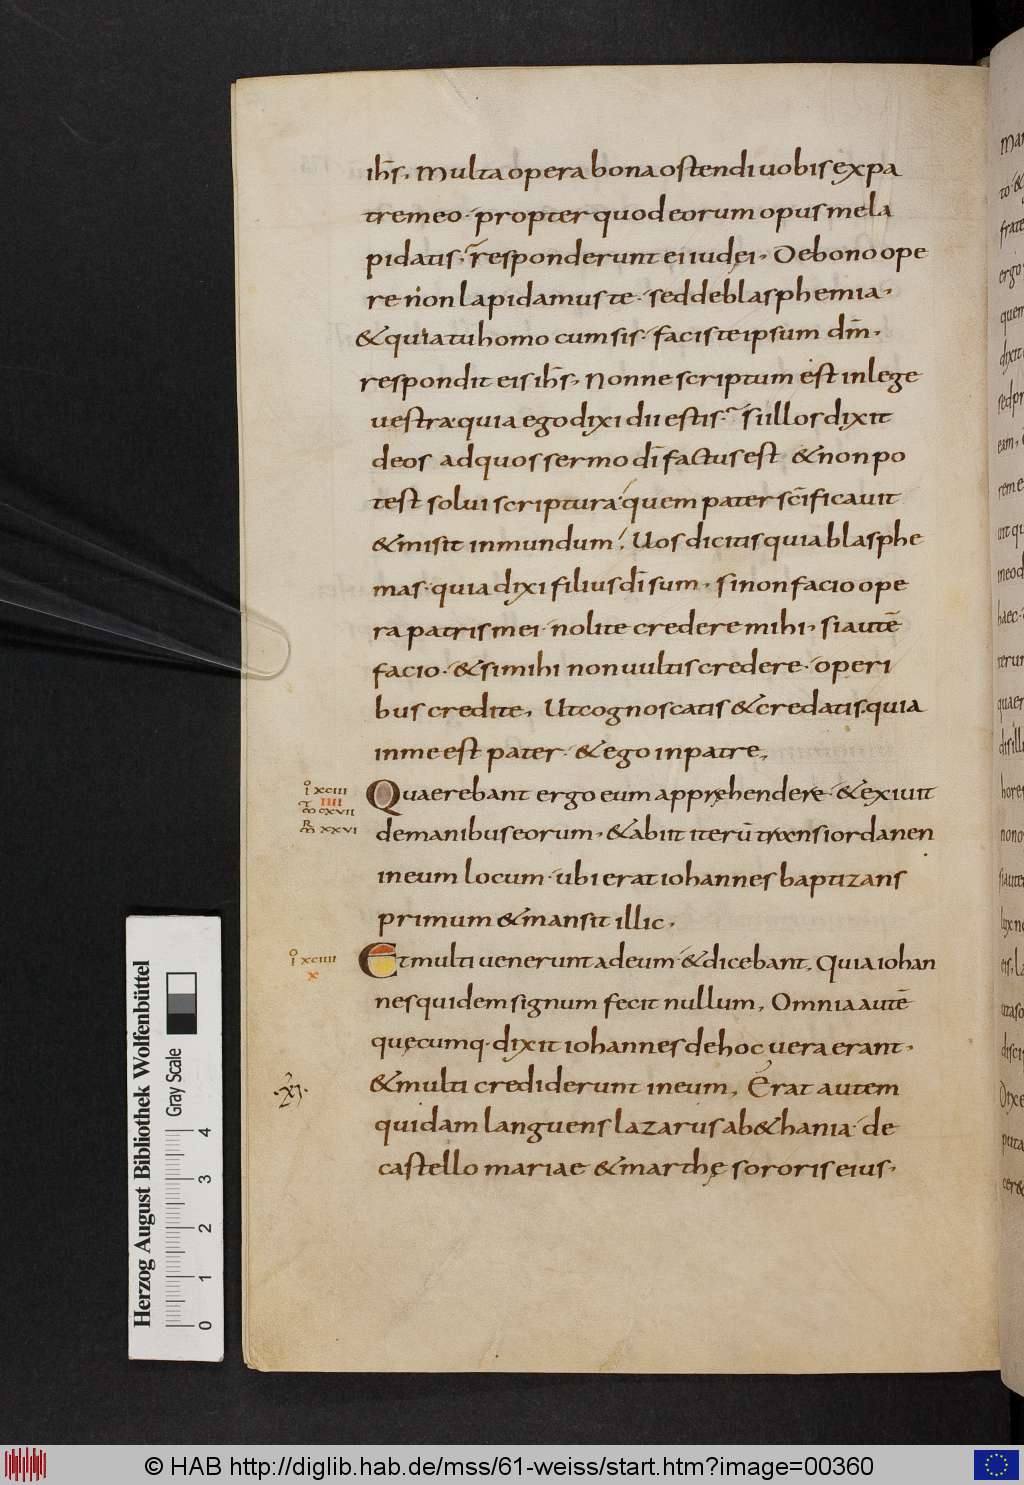 ih̅s, Multa opera bona ostendi uobis ex pa
tre meo· propter quod eorum opus me la
pidatis, responderunt ei iudęi, De bono ope
re non lapidamus te· sed de blasphemia,
& quia tu homo cum sis· facis te ipsum dm̅,
respondit eis ih̅s, Nonne scriptum est in lege
uestra quia ego dixi dii estis, Si illos dixit
deos ad quos sermo di̅ factus est & non po
test solui scriptura· quem pater sc̅ificauit
& misit in mundum, Uos dicitis quia blasphe
mas· quia dixi filius di̅ sum, si non facio ope
ra patris mei· nolite credere mihi, si autē
facio· & si mihi non uultis credere· operi
bus credite, Ut cognoscatis & credatis quia
in me est pater· & ego in patre,
Quaerebant ergo eum apprę hendere· & exiuit
de manibus eorum, & abiit iterū trans iordanen
in eum locum· ubi erat iohannes baptizans
primum & mansit illic,
Et multi uenerunt ad eum· & dicebant, Quia iohan
nes quidem signum fecit nullum, Omnia autē
quęcumq· dixit iohannes de hoc uera erant,
& multi crediderunt in eum, Erat autem
quidam languens lazarus a b&hania· de
castello mariae & marthę sororis eius,
I XCIII
IIII
M CXVII
M XXVI
I XCIIII
X
·XI·
Herzog August Bibliothek Wolfenbüttel
Gray Scale
0 1 2 3 4
© HAB http://diglib.hab.de/mss/61-weiss/start.htm?image=00360